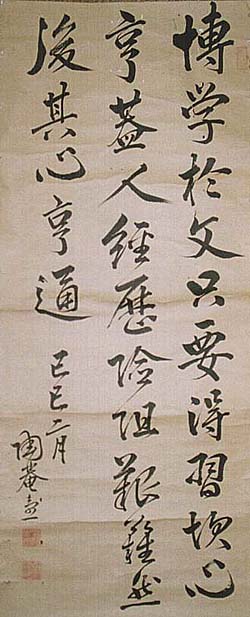 博学於文只要得習坎心
亨蓋人經歴險阻艱難然
後其心亨通己巳二月
陶菴壽一